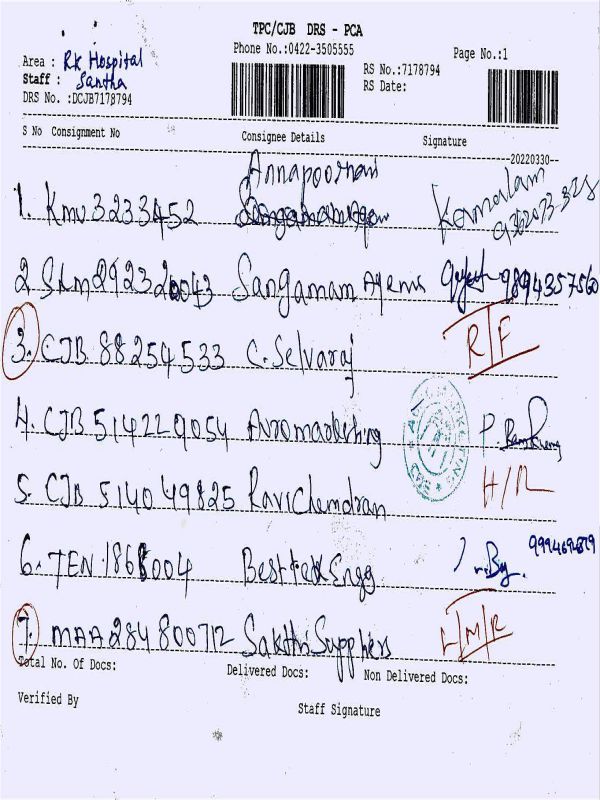 TPC/CJB DRS - PCA
Phone No.:0422-3505555
Page No.:1
Area : RK Hospital
Staff : Santha
DRS No. :DCJB7178794
RS No.:7178794
RS Date:
S No Consignment No Consignee Details Signature
20220330
Annapoorani
1. KMU 3233452 Kamalam
2 SLM 292320043 Sangamam Agenis 9894357560
3. CJB 88254533 C. Selvaraj R/F
4. CJB 514229054 Auromarketing P.
5. CJB 514049825 Ravichandran H/R
6. TEN 1865004 Besttek Engg
7. MAA 284800712 Sakthi Suppliers L/M/R
Total No. Of Docs: Delivered Docs: Non Delivered Docs:
Verified By
Staff Signature